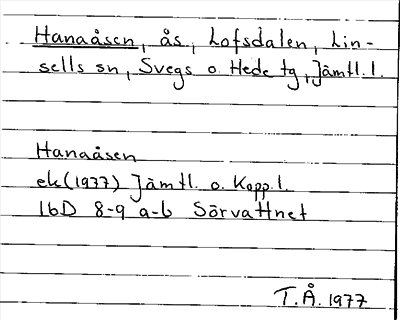 Hanaåsen, ås, Lofsdalen, Lin-
sells sn, Svegs o. Hede tg, Jämtl. l.
Hanaåsen
ek (1977) Jämtl. o. Kopp. l.
16D 8-9 a-b Sörvattnet
T.Å. 1977